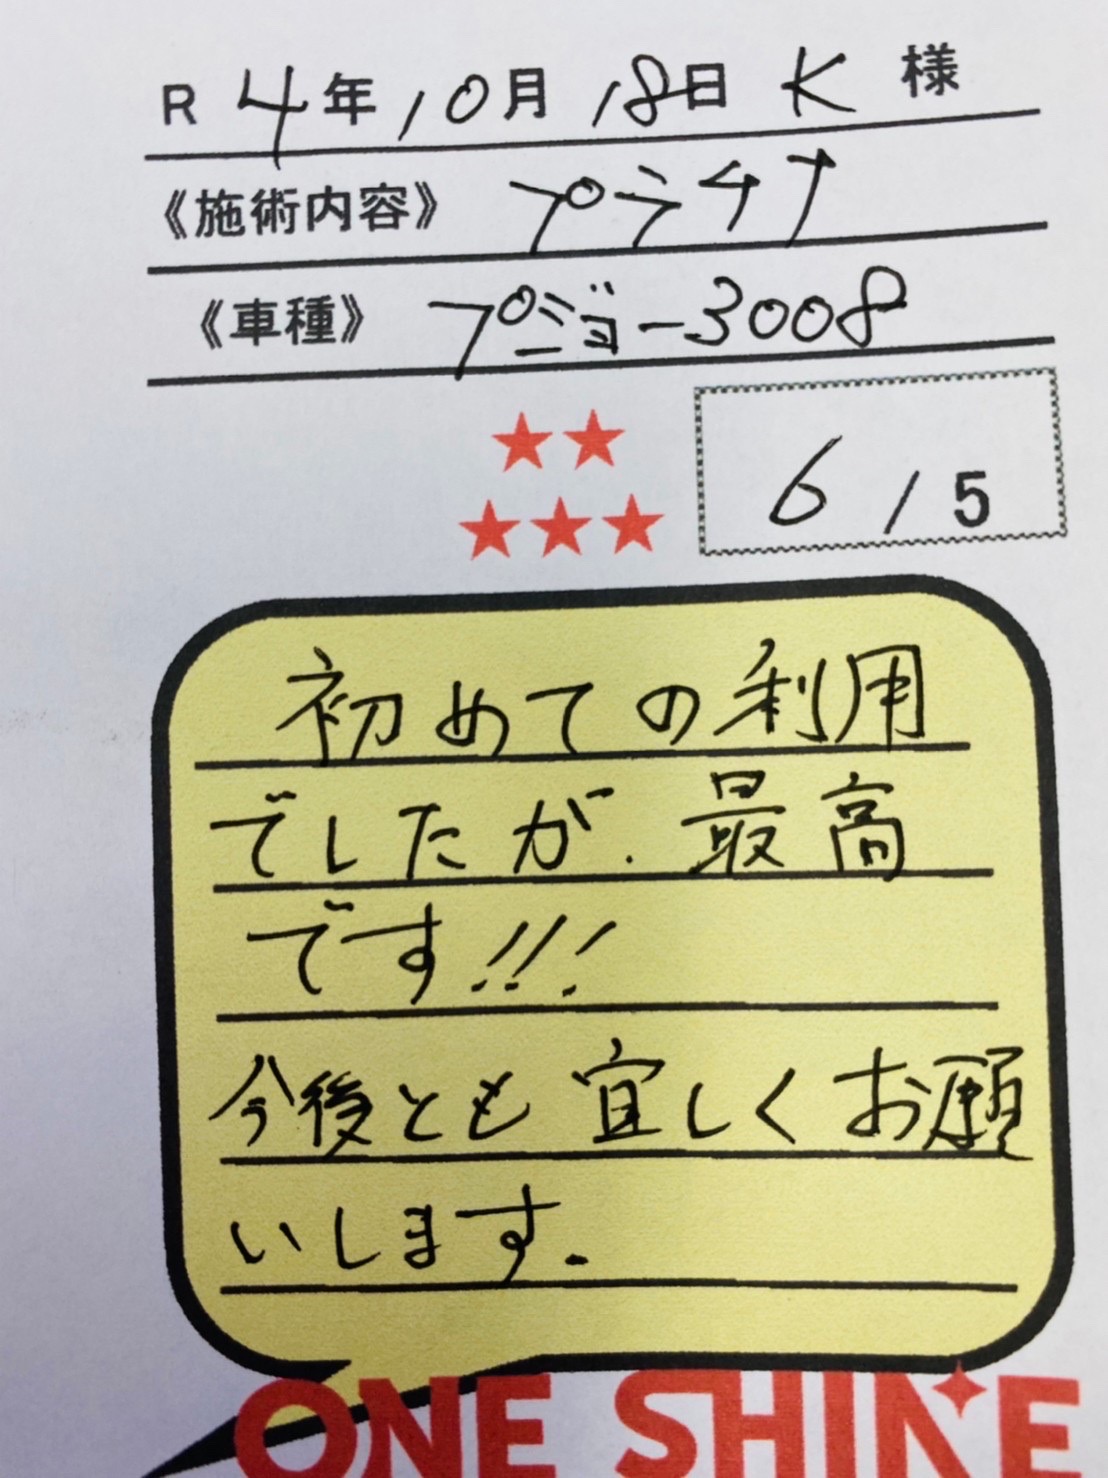 R 4年 10月 18日 K 様
《施術内容》 プラチナ
《車種》 プジョー3008
6 / 5
初めての利用
でしたが、最高
です!!!
今後とも宜しくお願
いします.
ONE SHINE